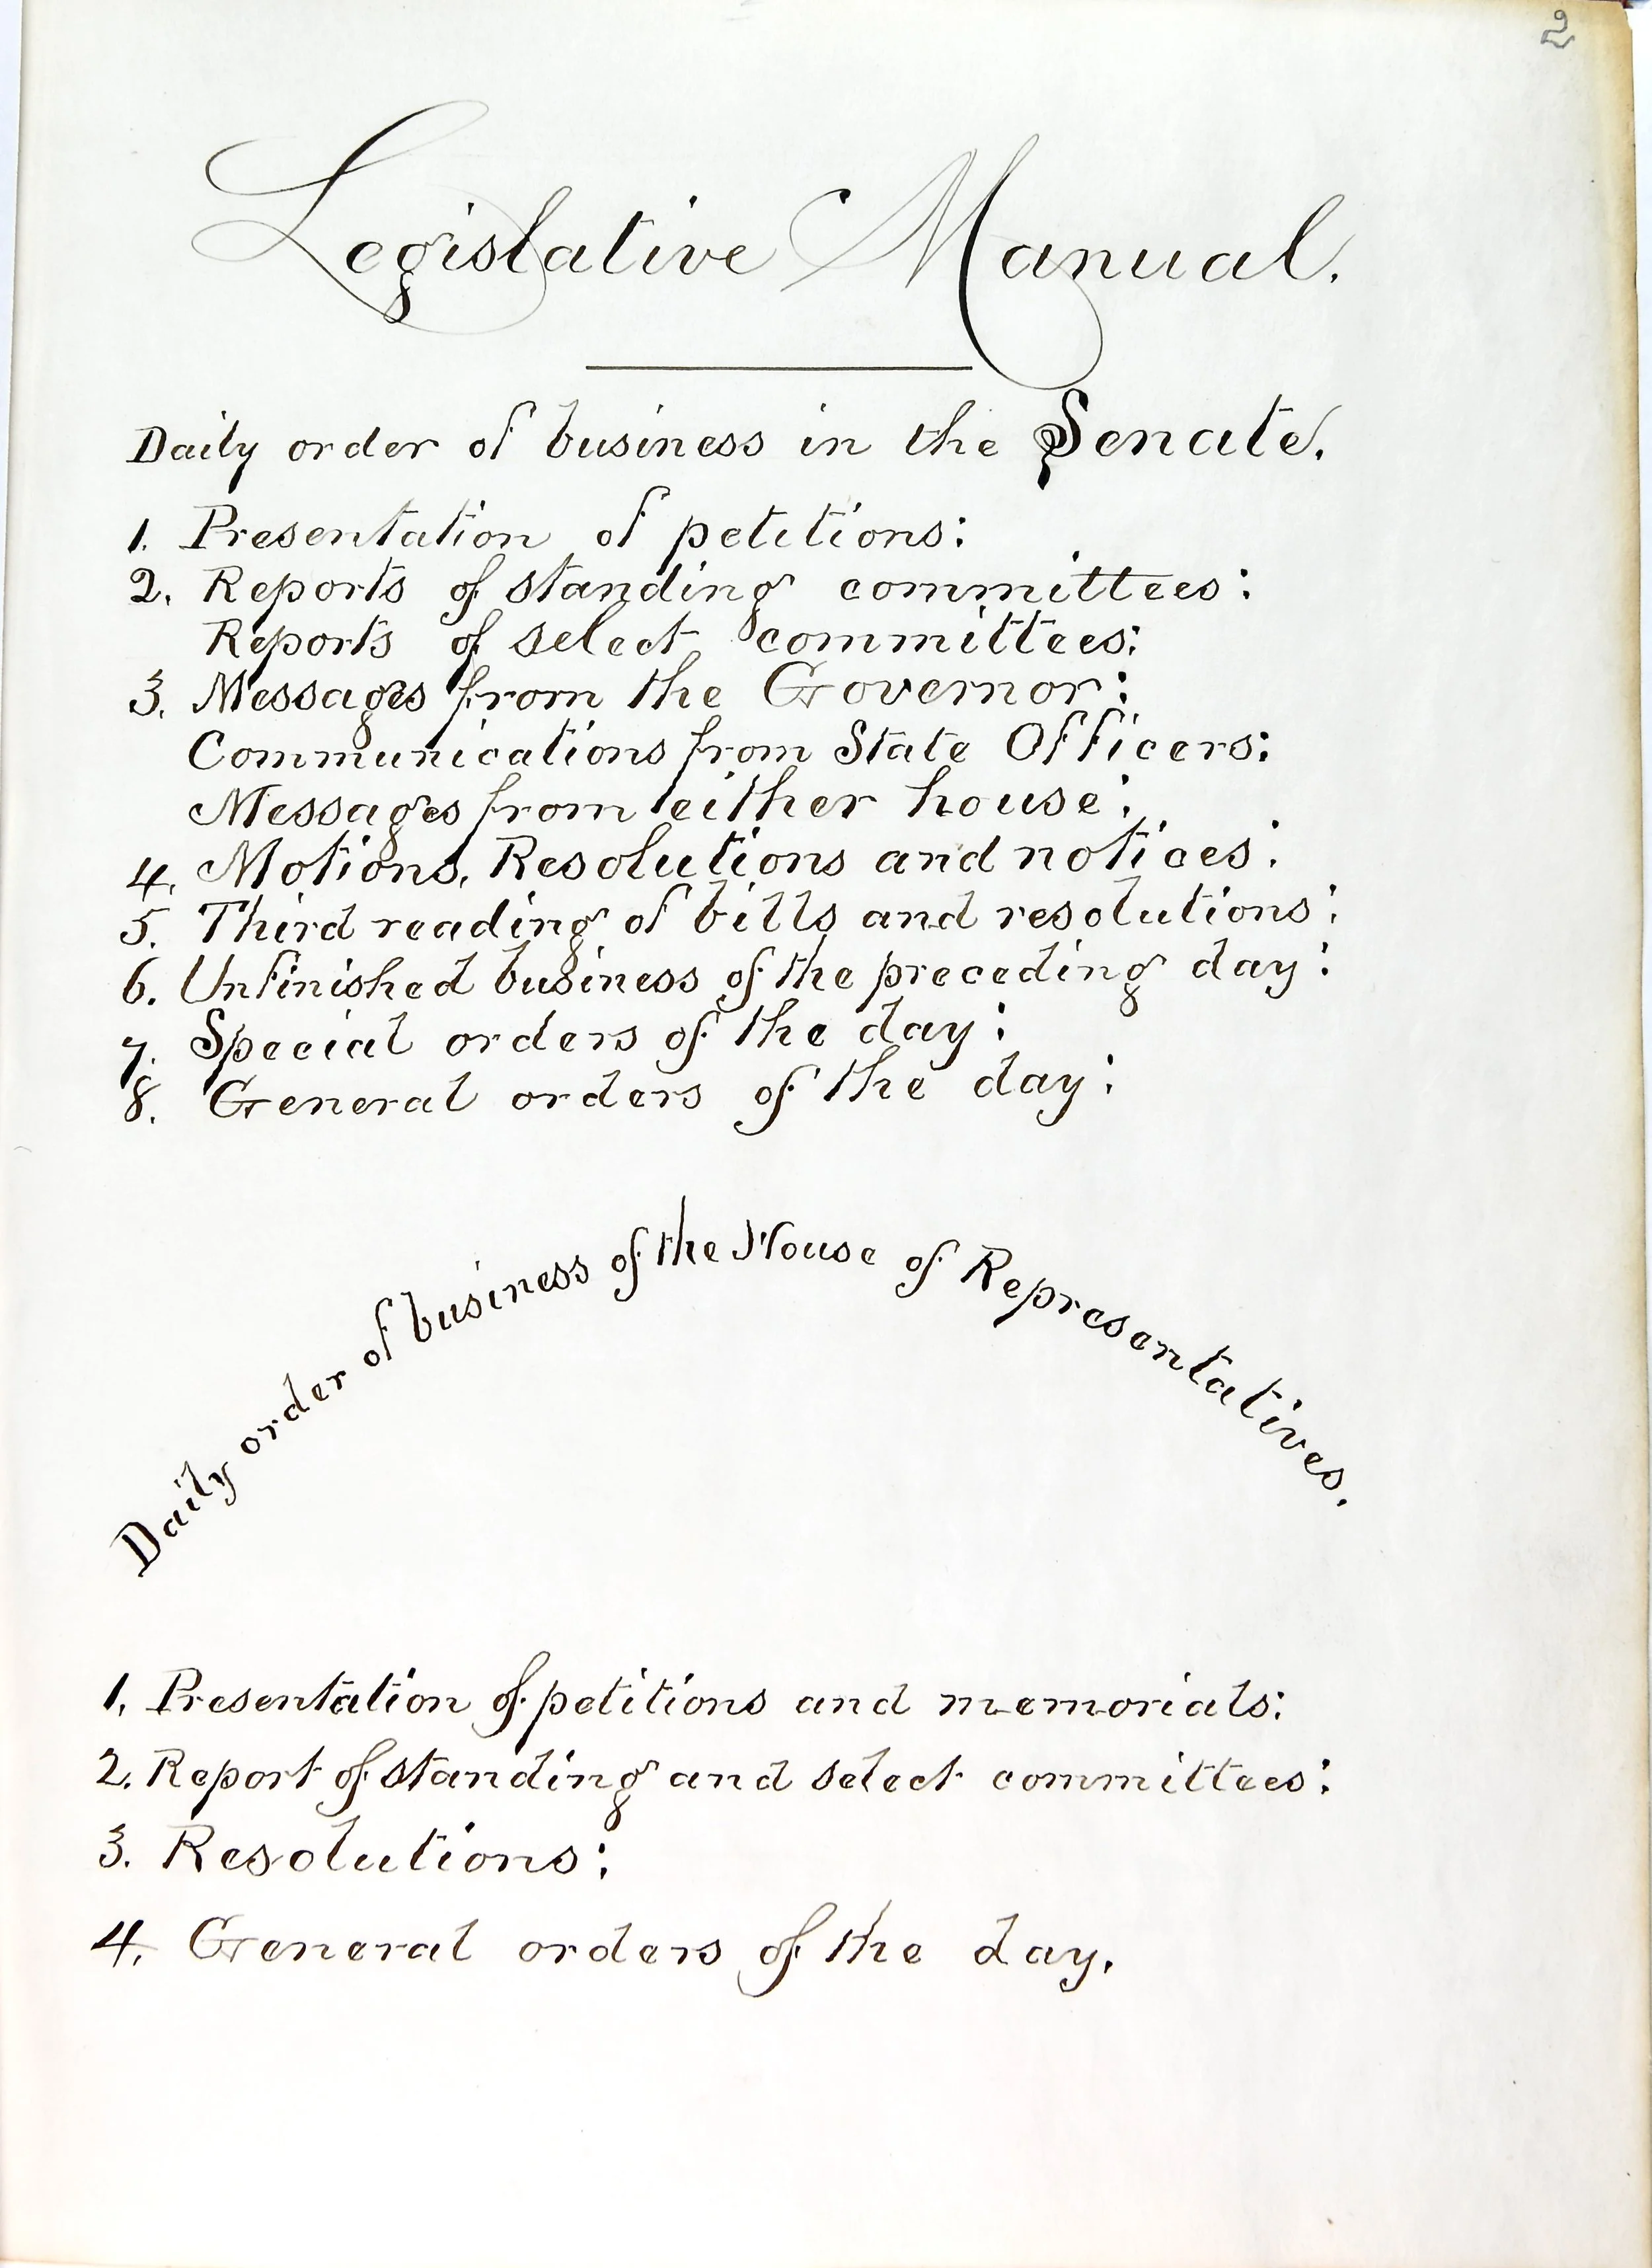 2
Legislative Manual.
Daily order of business in the Senate.
1. Presentation of petitions:
2. Reports of standing committees:
Reports of select committees:
3. Messages from the Governor:
Communications from State Officers:
Messages from either house:
4. Motions, Resolutions and notices:
5. Third reading of bills and resolutions:
6. Unfinished business of the preceding day:
7. Special orders of the day:
8. General orders of the day:
Daily order of business of the House of Representatives.
1. Presentation of petitions and memorials:
2. Report of standing and select committees:
3. Resolutions:
4. General orders of the day.